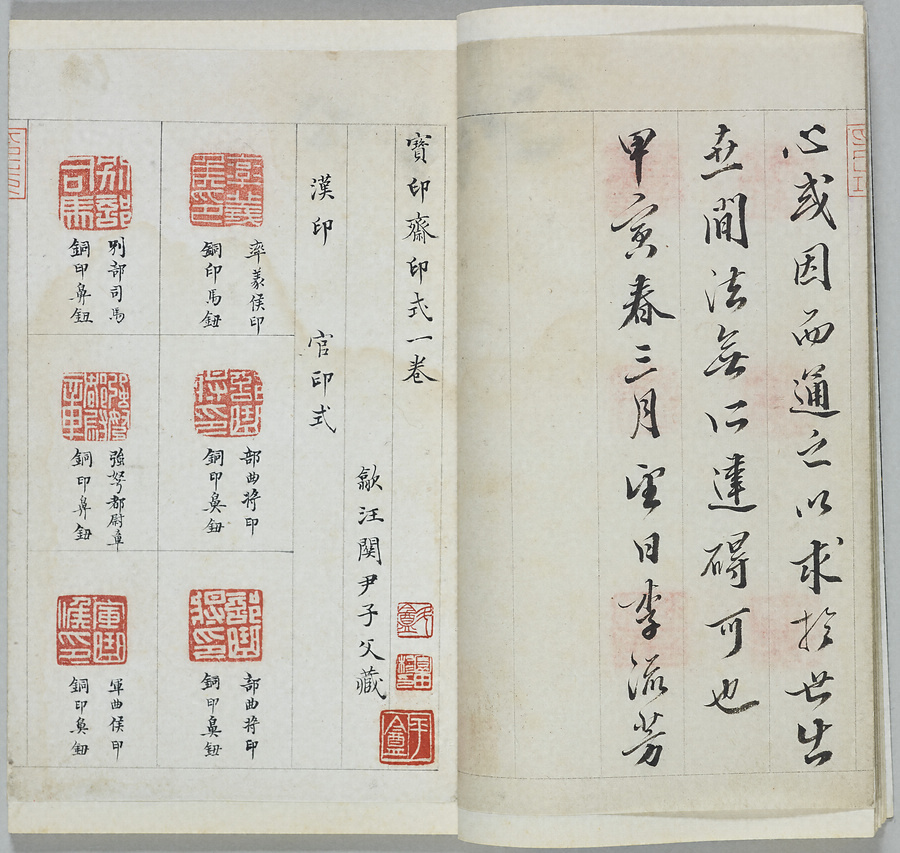 心或因而通之以求於世出
世間法無所達礙可也
甲寅春三月望日李流芳
寶印齋印式一卷
歙汪関尹子父藏
漢印 官印式
率義侯印
銅印馬鈕
部曲将印
銅印鼻鈕
部曲将印
銅印鼻鈕
別部司馬
銅印鼻鈕
強弩都尉章
銅印鼻鈕
軍曲侯印
銅印鼻鈕